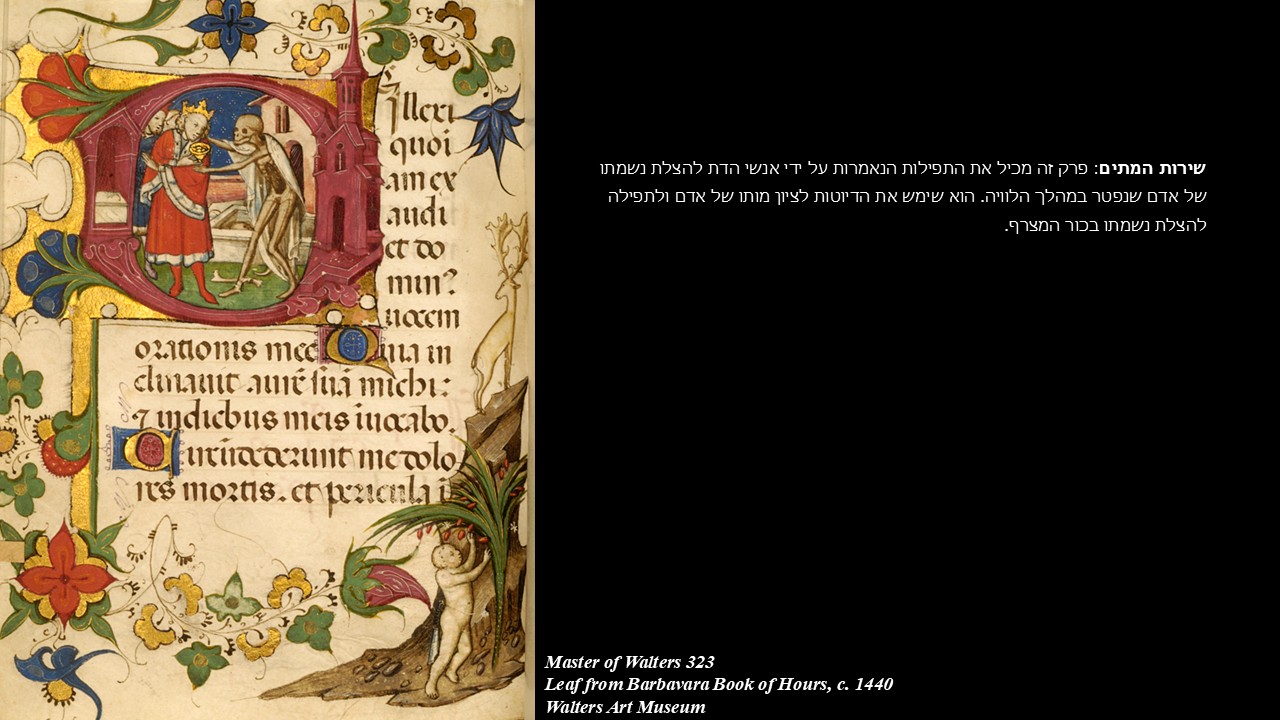 illexi
quoi
am ex
audi
et do
min?
uocem
orationis mee Quia in
clinauit aurē suā michi:
⁊ in diebus meis inuocabo.
Circūdederunt me dolo
res mortis. et pericula ī
שירות המתים: פרק זה מכיל את התפילות הנאמרות על ידי אנשי הדת להצלת נשמתו
של אדם שנפטר במהלך הלוויה. הוא שימש את הדיוטות לציון מותו של אדם ולתפילה
להצלת נשמתו בכור המצרף.
Master of Walters 323
Leaf from Barbavara Book of Hours, c. 1440
Walters Art Museum